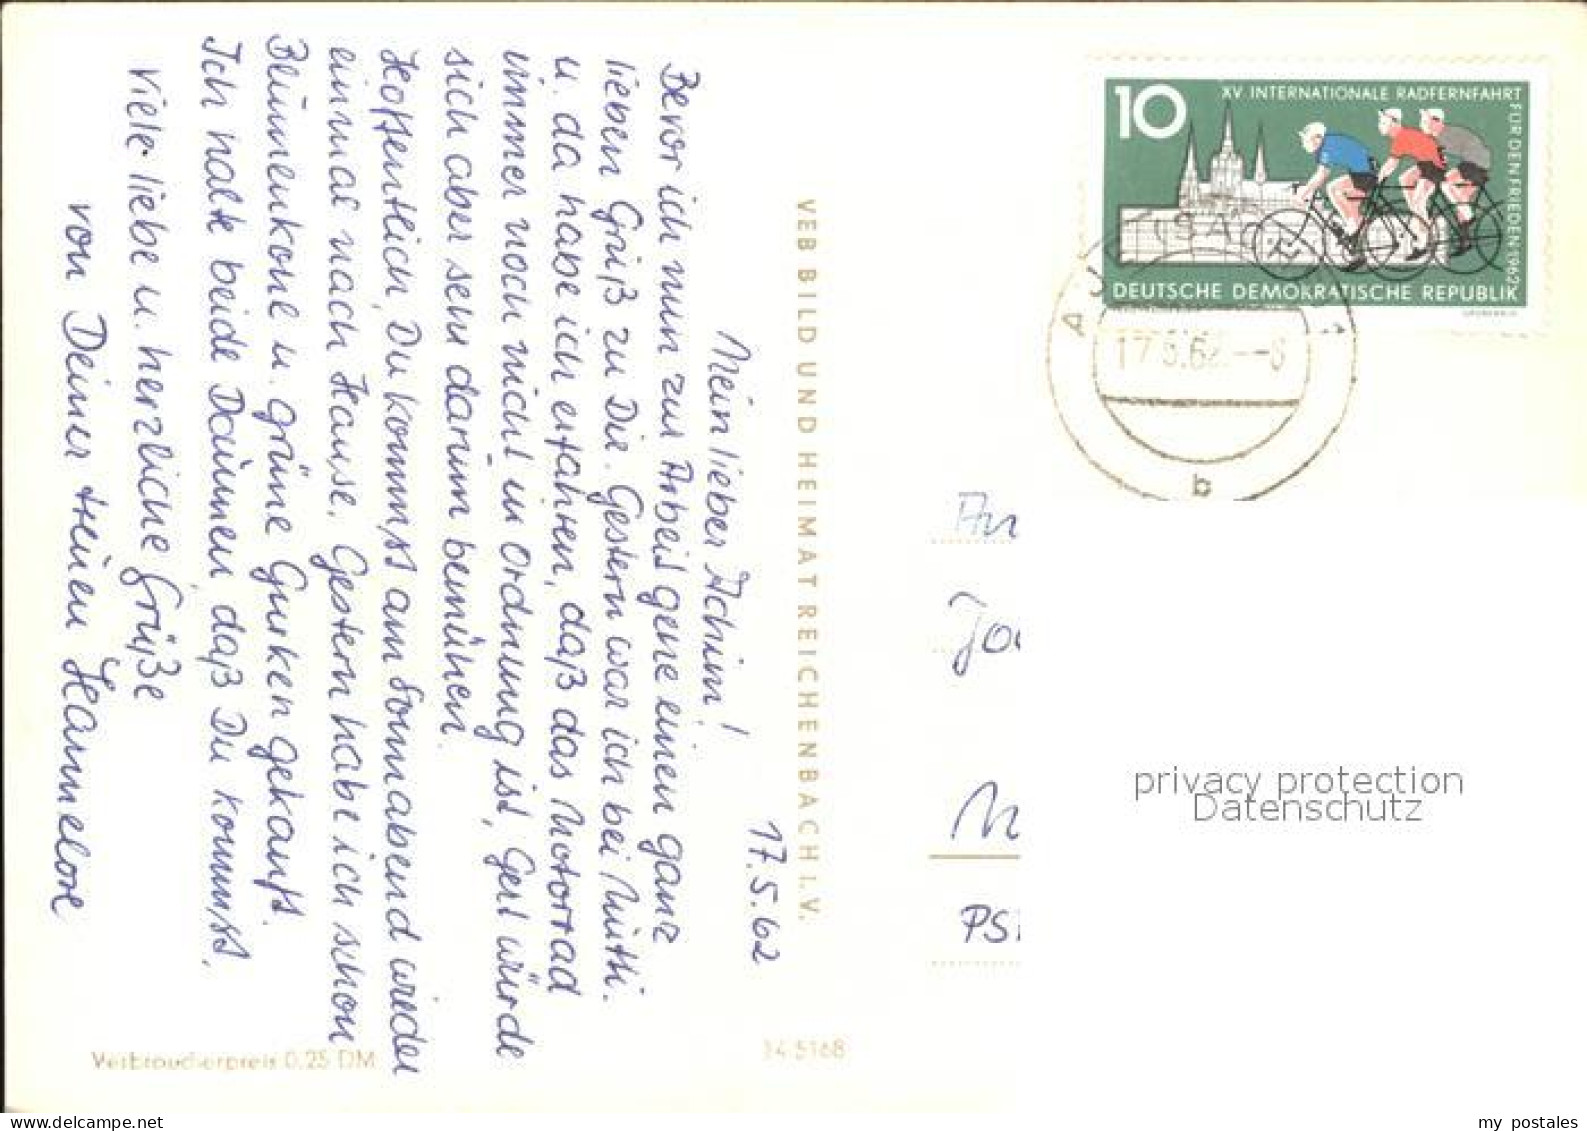 17.5.62
Mein lieber Achim!
Bevor ich nun zur Arbeit gehe einen ganz
lieben Gruß zu Dir. Gestern war ich bei Mutti.
u. da habe ich erfahren, daß das Motorrad
immer noch nicht in Ordnung ist, Gert würde
sich aber sehr darum bemühen.
Hoffentlich, Du kommst am Sonnabend wieder
einmal nach Hause. Gestern habe ich schon
Blumenkohl u. grüne Gurken gekauft.
Ich halte beide Daumen, daß Du kommst.
Viele liebe u. herzliche Grüße
von Deiner treuen Hannelore
VEB BILD UND HEIMAT REICHENBACH I. V.
Verbraucherpreis 0,25 DM
14 5168
10
XV INTERNATIONALE RADFERNFAHRT
FÜR DEN FRIEDEN 1962
DEUTSCHE DEMOKRATISCHE REPUBLIK
AUE (SACHS)
17.5.62.--8
b
An
Joa
M
PS
privacy protection
Datenschutz
www.delcampe.net
my postales